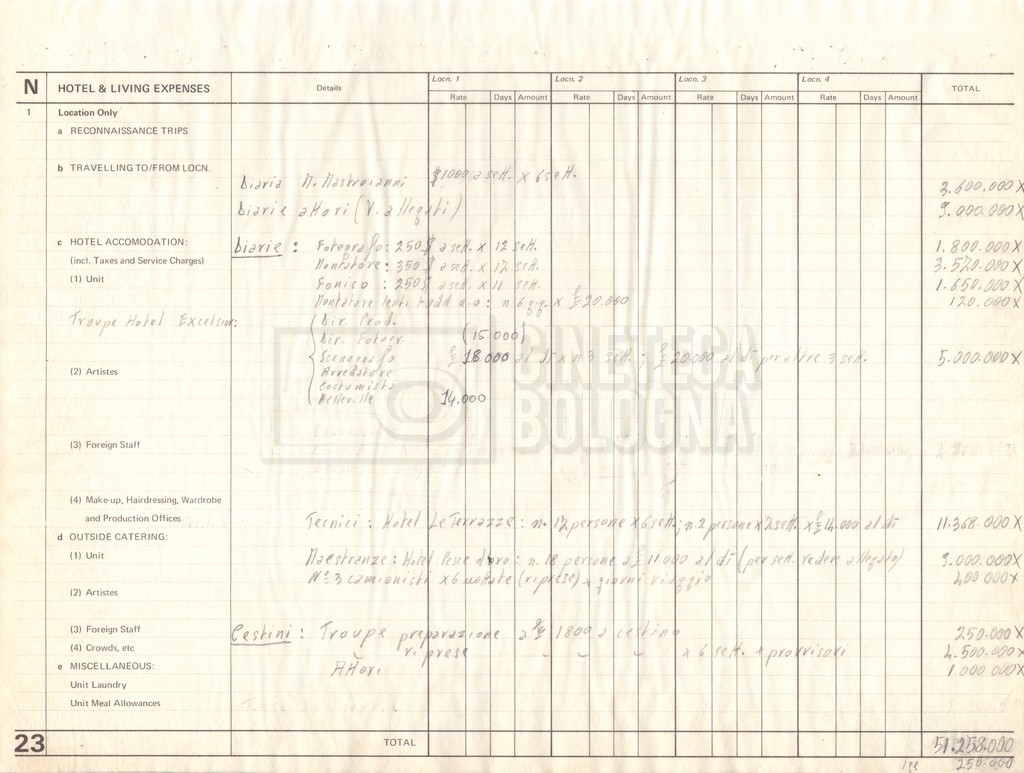 N HOTEL & LIVING EXPENSES Details Locn. 1 Locn. 2 Locn. 3 Locn. 4 TOTAL
Rate Days Amount Rate Days Amount Rate Days Amount Rate Days Amount
1 Location Only
a RECONNAISSANCE TRIPS
b TRAVELLING TO/FROM LOCN.
Diaria M. Mastroianni $1000 a sett. x 6 sett. 3.600.000 X
Diarie attori (V. allegati) 9.000.000 X
c HOTEL ACCOMODATION: Diarie: Fotografo: 250 $ a sett. x 12 sett. 1.800.000 X
(incl. Taxes and Service Charges) Montatore: 350 $ a sett. x 12 sett. 3.520.000 X
(1) Unit Fonico: 250 $ a sett. x 11 sett. 1.650.000 X
Montatore n. 6 gg. x £ 20.000 120.000 X
Troupe Hotel Excelsior: Dir. Prod.
Dir. Fotogr. (15.000)
Scenografo £ 18.000 al dì x n. 3 sett.; £ 20.000 al dì per altre 3 sett. 5.000.000 X
(2) Artistes Arredatore
Costumista
Belleville 14.000
(3) Foreign Staff
(4) Make-up, Hairdressing, Wardrobe
and Production Offices Tecnici: Hotel Le Terrazze: n. 12 persone x 6 sett.; n. 2 persone x 2 sett. x £ 14.000 al dì 11.368.000 X
d OUTSIDE CATERING:
(1) Unit Maestranze: Hotel Pesce d'oro: n. 18 persone a £ 11.000 al dì (per sett. vedere allegato) 9.000.000 X
N° 3 camionisti x 6 (riprese) + giorni viaggio 400.000 X
(2) Artistes
(3) Foreign Staff Cestini: Troupe preparazione a £ 1800 a cestino 250.000 X
(4) Crowds, etc riprese x 6 sett. + provvisori 4.500.000 X
e MISCELLANEOUS: Attori 1.000.000 X
Unit Laundry
Unit Meal Allowances
23 TOTAL 51.258.000
250.000
CINETECA
BOLOGNA